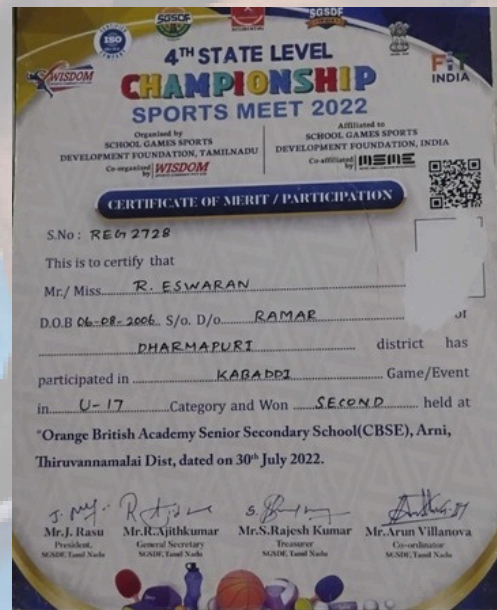 ISO
SGSDF
SGSDF
WISDOM
FIT
INDIA
4TH STATE LEVEL
CHAMPIONSHIP
SPORTS MEET 2022
Organised by
SCHOOL GAMES SPORTS
DEVELOPMENT FOUNDATION, TAMILNADU
Co-organised by WISDOM
Affiliated to
SCHOOL GAMES SPORTS
DEVELOPMENT FOUNDATION, INDIA
Co-affiliated by MEME
CERTIFICATE OF MERIT / PARTICIPATION
S.No : REG 2728
This is to certify that
Mr./ Miss. R. ESWARAN
D.O.B 06-08-2006 S/o. D/o. RAMAR of
DHARMAPURI district has
participated in KABADDI Game/Event
in U-17 Category and Won SECOND held at
"Orange British Academy Senior Secondary School(CBSE), Arni,
Thiruvannamalai Dist, dated on 30th July 2022.
Mr.J. Rasu Mr.R.Ajithkumar Mr.S.Rajesh Kumar Mr.Arun Villanova
President, General Secretary Treasurer Co-ordinator
SGSDF, Tamil Nadu SGSDF, Tamil Nadu SGSDF, Tamil Nadu SGSDF, Tamil Nadu